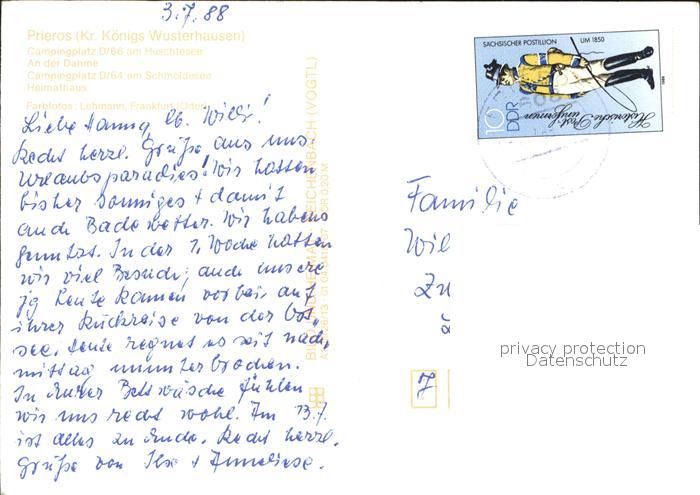 3.7.88
Prieros (Kr. Königs Wusterhausen)
Campingplatz D/66 am Huschtesee
An der Dahme
Campingplatz D/64 am Schmoldesee
Heimathaus
Farbfotos: Lehmann, Frankfurt (Oder)
Liebe Hanny, lb. Willi!
Recht herzl. Grüße aus uns.
Urlaubsparadies! Wir hatten
bisher sonniges + damit
auch Badewetter. Wir habens
genutzt. In der 1. Woche hatten
wir viel Besuch, auch unsere
jg Leute kamen vorbei, auf
ihrer Rückreise von der Ost-
see. Heute regnet es seit nach-
mittag ununterbrochen.
In Eurer Bettwäsche fühlen
wir uns recht wohl. Am 13.7.
ist alles zu Ende. Recht herzl.
Grüße von Ilse + Anneliese.
REICHENBACH (VOGTL)
SÄCHSISCHER POSTILLION UM 1850
10
DDR
Historische Post
uniformen
1986
Familie
Wil
Zu
privacy protection
Datenschutz